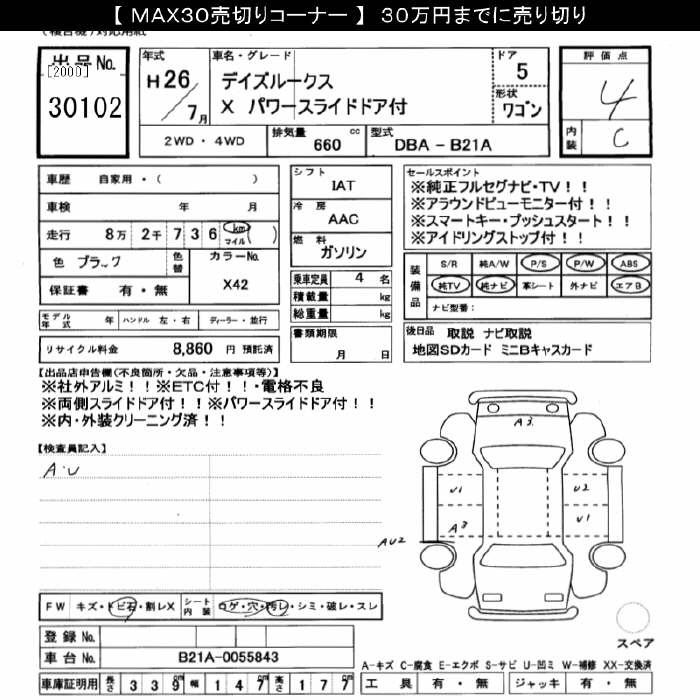 【 MAX30売切りコーナー 】 30万円までに売り切り
(複合機)対応用紙
出品No.
[2000]
30102
年式
H26/7月
車名・グレード
デイズルークス
X パワースライドドア付
ドア
5
形状
ワゴン
評価点
4
内装
C
2WD・4WD
排気量 660 cc
型式 DBA - B21A
車歴 自家用・( )
車検 年 月
走行 8万 2千 7 3 6 (km マイル)
色 ブラック
色替
カラーNo.
X42
保証書 有・無
シフト
IAT
冷房
AAC
燃料
ガソリン
乗車定員 4 名
積載量 kg
総重量 kg
セールスポイント
※純正フルセグナビ・TV！！
※アラウンドビューモニター付！！
※スマートキー・プッシュスタート！！
※アイドリングストップ付！！
装備品
S/R 純A/W P/S P/W ABS
純TV 純ナビ 革シート 外ナビ エアB
ナビ型番：
モデル年式 年 ハンドル 左・右 ディーラー・並行
リサイクル料金 8,860 円 預託済
書類期限
月 日
後日品 取説 ナビ取説
地図SDカード ミニBキャスカード
【出品店申告欄(不良箇所・欠品・注意事項等)】
※社外アルミ！！※ETC付！！・電格不良
※両側スライドドア付！！※パワースライドドア付！！
※内・外装クリーニング済！！
【検査員記入】
A・U
A3
U1
U2
A3
U1
AU2
FW キズ・トビ石・割レX
シート内装 コゲ・穴・汚レ・シミ・破レ・スレ
登録No.
車台No. B21A-0055843
車庫証明用 長さ 3 3 9 幅 1 4 7 高さ 1 7 7
スペア
A-キズ C-腐食 E-エクボ S-サビ U-凹ミ W-補修 XX-交換済
工具 有・無 ジャッキ 有・無